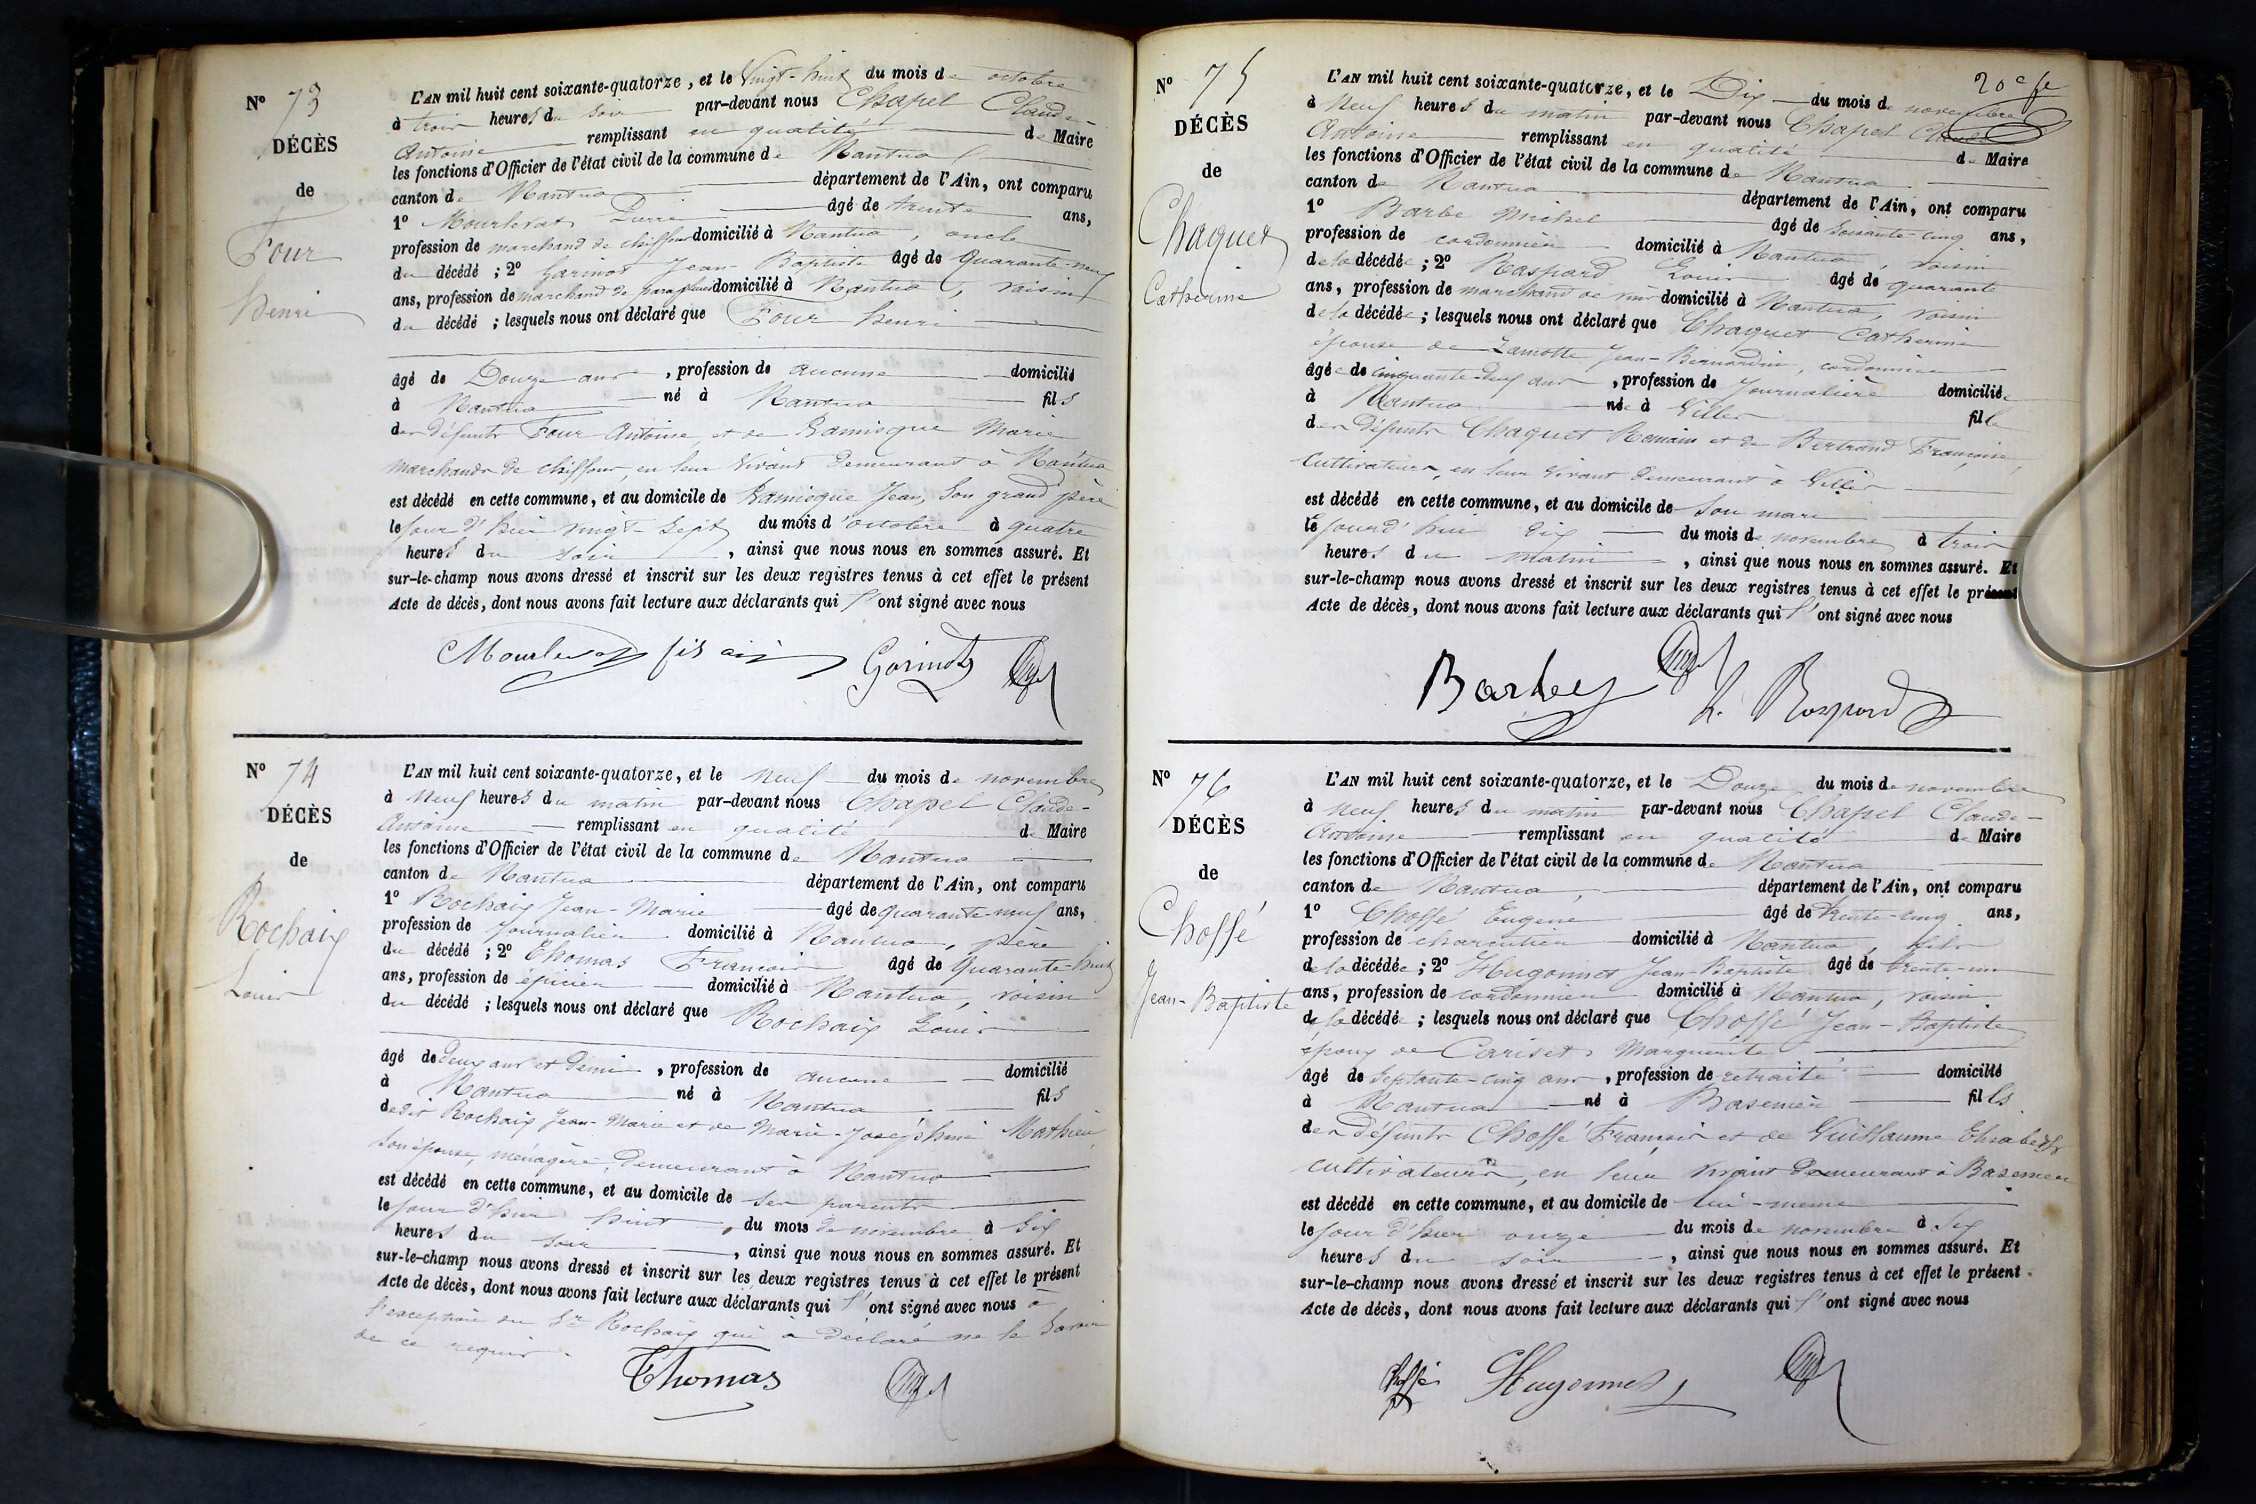 N° 73
DÉCÈS
de
Four
Henri
L'AN mil huit cent soixante-quatorze, et le Vingt-huit du mois de octobre
à trois heures du soir par-devant nous Chapel Claude-
Antoine remplissant en qualité de Maire
les fonctions d'Officier de l'état civil de la commune de Nantua
canton de Nantua département de l'Ain, ont comparu
1° Mourlevat Pierre âgé de trente ans,
profession de marchand de chiffons domicilié à Nantua, oncle
du décédé ; 2° Garinot Jean-Baptiste âgé de Quarante-neuf
ans, profession de marchand de parapluies domicilié à Nantua, voisin
du décédé ; lesquels nous ont déclaré que Four Henri
âgé de Douze ans, profession de aucune domicilié
à Nantua né à Nantua fils
des défunts Four Antoine et de Ramisque Marie
marchands de chiffons, en leur vivant demeurant à Nantua
est décédé en cette commune, et au domicile de Ramisque Jean, son grand père
le jour d'hier vingt-sept du mois d'octobre à quatre
heures du soir, ainsi que nous nous en sommes assuré. Et
sur-le-champ nous avons dressé et inscrit sur les deux registres tenus à cet effet le présent
Acte de décès, dont nous avons fait lecture aux déclarants qui l'ont signé avec nous
Mourlevat fils ainé Garinot
N° 74
DÉCÈS
de
Rochaix
Louis
L'AN mil huit cent soixante-quatorze, et le neuf du mois de novembre
à neuf heures du matin par-devant nous Chapel Claude-
Antoine remplissant en qualité de Maire
les fonctions d'Officier de l'état civil de la commune de Nantua
canton de Nantua département de l'Ain, ont comparu
1° Rochaix Jean-Marie âgé de quarante-neuf ans,
profession de journalier domicilié à Nantua, père
du décédé ; 2° Thomas François âgé de Quarante-huit
ans, profession de épicier domicilié à Nantua, voisin
du décédé ; lesquels nous ont déclaré que Rochaix Louis
âgé de deux ans et demi, profession de aucune domicilié
à Nantua né à Nantua fils
dedit Rochaix Jean-Marie et de Marie-Joséphine Mathieu
son épouse, ménagère, demeurant à Nantua
est décédé en cette commune, et au domicile de ses parents
le jour d'hier huit du mois de novembre à six
heures du soir, ainsi que nous nous en sommes assuré. Et
sur-le-champ nous avons dressé et inscrit sur les deux registres tenus à cet effet le présent
Acte de décès, dont nous avons fait lecture aux déclarants qui l'ont signé avec nous à
l'exception du Sr Rochaix qui a déclaré ne le savoir
de ce requis.
Thomas
20e fe
N° 75
DÉCÈS
de
Chaquet
Catherine
L'AN mil huit cent soixante-quatorze, et le Dix du mois de novembre
à neuf heures du matin par-devant nous Chapel Claude
Antoine remplissant en qualité de Maire
les fonctions d'Officier de l'état civil de la commune de Nantua
canton de Nantua département de l'Ain, ont comparu
1° Barbe Michel âgé de soixante-cinq ans,
profession de cordonnier domicilié à Nantua, voisin
de la décédée ; 2° Raspard Louis âgé de quarante
ans, profession de marchand de vin domicilié à Nantua, voisin
de la décédée ; lesquels nous ont déclaré que Chaquet Catherine
épouse de Lamotte Jean-Bernardin, cordonnier
âgée de cinquante-neuf ans, profession de Journalière domiciliée
à Nantua née à Villes fille
des défunts Chaquet Romain et de Bertrand Françoise,
cultivateurs, en leur vivant demeurant à Villes
est décédé en cette commune, et au domicile de son mari
le jourd'hui dix du mois de novembre à trois
heures du matin, ainsi que nous nous en sommes assuré. Et
sur-le-champ nous avons dressé et inscrit sur les deux registres tenus à cet effet le présent
Acte de décès, dont nous avons fait lecture aux déclarants qui l'ont signé avec nous
Barbe L. Raspard
N° 76
DÉCÈS
de
Choffé
Jean-Baptiste
L'AN mil huit cent soixante-quatorze, et le Douze du mois de novembre
à neuf heures du matin par-devant nous Chapel Claude-
Antoine remplissant en qualité de Maire
les fonctions d'Officier de l'état civil de la commune de Nantua
canton de Nantua, département de l'Ain, ont comparu
1° Choffé Eugène âgé de trente-cinq ans,
profession de charcutier domicilié à Nantua, fils
de la décédée ; 2° Hugonnet Jean-Baptiste âgé de trente-un
ans, profession de cordonnier domicilié à Nantua, voisin
de la décédé ; lesquels nous ont déclaré que Choffé Jean-Baptiste
époux de Cariset Marguerite
âgé de septante-cinq ans, profession de retraité domicilié
à Nantua né à Basemèn fils
des défunts Choffé François et de Guillaume Elisabeth
cultivateurs, en leur vivant demeurant à Basemèn
est décédé en cette commune, et au domicile de lui-même
le jour d'hier onze du mois de novembre à six
heures du soir, ainsi que nous nous en sommes assuré. Et
sur-le-champ nous avons dressé et inscrit sur les deux registres tenus à cet effet le présent
Acte de décès, dont nous avons fait lecture aux déclarants qui l'ont signé avec nous
Choffé Hugonnet